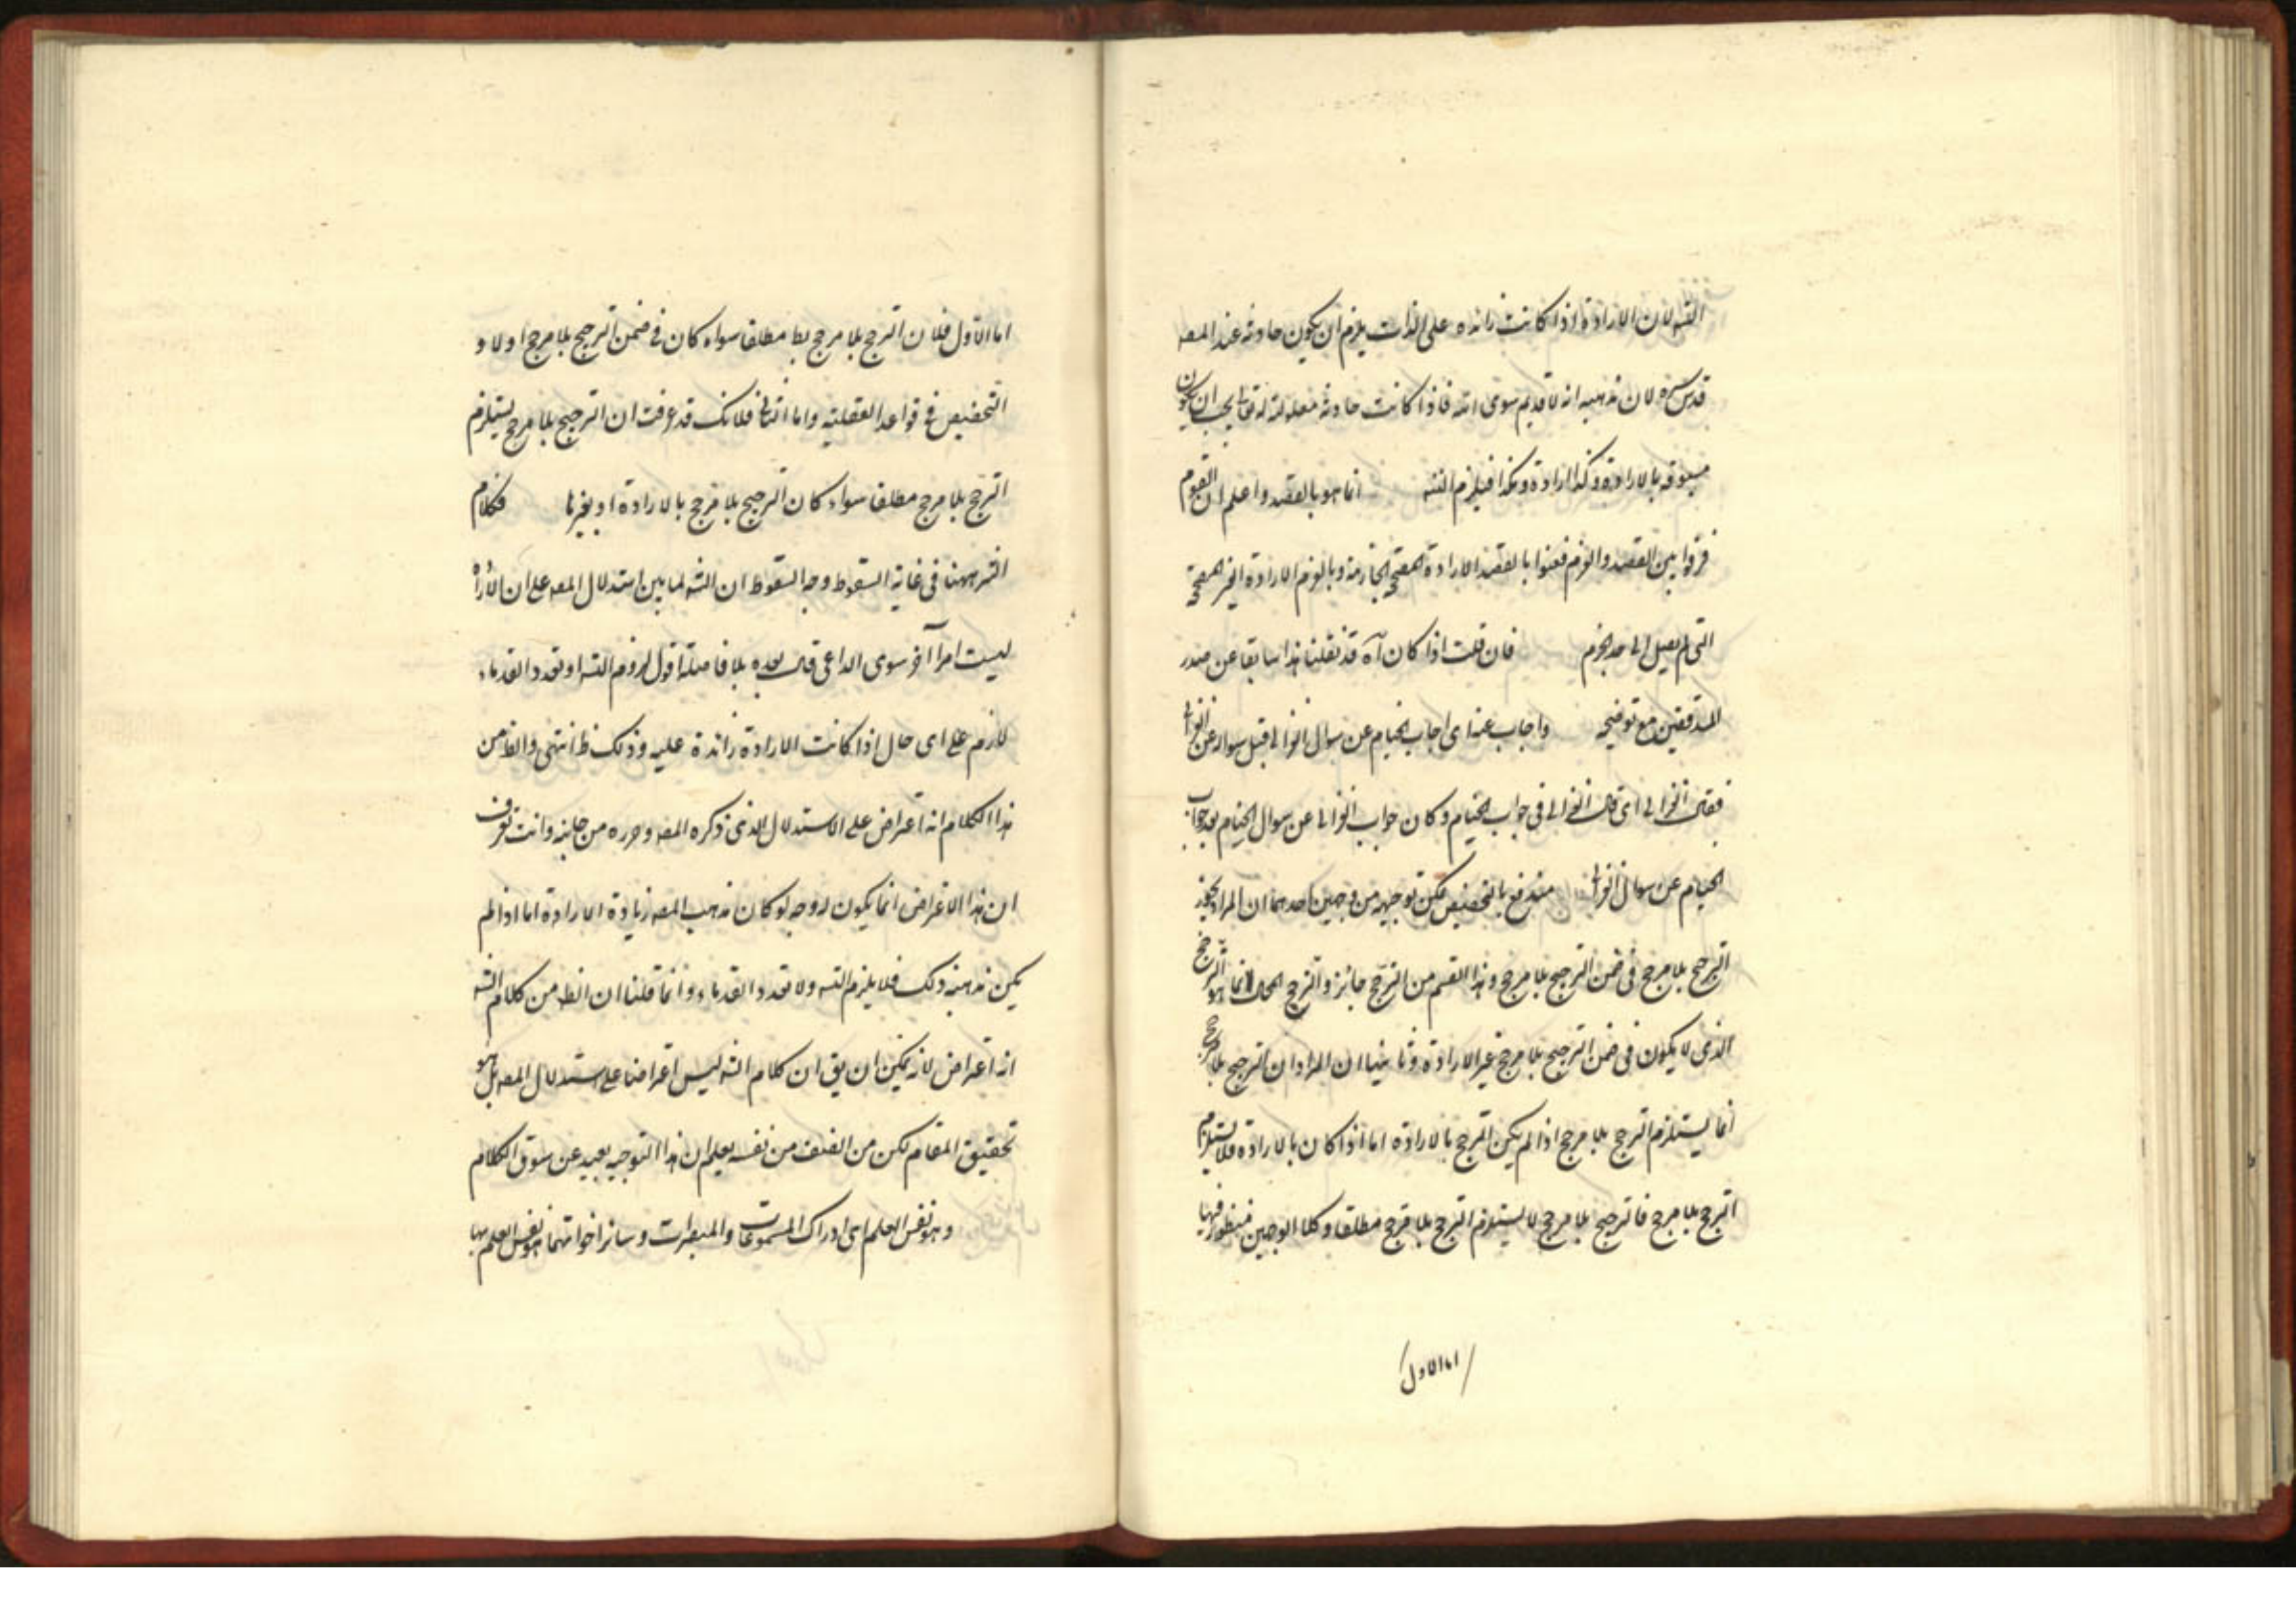 التس لان الارادة اذا كانت زائدة على الذات يلزم ان يكون حادثة عند المصه
قدس سره لان مذهبه انه لا قديم سوى الله فاذا كانت حادثة معلولة له تعالى يجب ان يكون
مسبوقة بالارادة وكذا ارادة وهكذا فيلزم التس انما هو بالقصد واعلم ان القوم
فرقوا بين القصد والعزم فعنوا بالقصد الارادة الجازمة وبالعزم الارادة الغير
التى لم يصل الى حد الجزم فان قلت اذا كان آه قد نقلنا هذا سابقا عن صدر
المدققين مع توضيحه واجاب عنه اى اجاب الخيام عن سوال الغزالى قبل سواله عن الغزالى
فقال الغزالى اى قال الغزالى فى جواب الخيام وكان جواب الغزالى عن سوال الخيام بعد جواب
الخيام عن سوال الغزالى مندفع بالتخصيص يمكن توجيهه من وجهين احدهما ان المراد تجويز
الترجح بلا مرجح فى ضمن الترجيح بلا مرجح وهذا القسم من الترجح جائز والترجح المحال انما هو الترجح
الذى لا يكون فى ضمن الترجيح بلا مرجح غير الارادة وثانيهما ان المراد ان الترجيح بلا مرجح
انما يستلزم الترجح بلا مرجح اذا لم يكن الترجيح بالارادة اما اذا كان بالارادة فلا يستلزم
الترجح بلا مرجح فالترجيح بلا مرجح لا يستلزم الترجح بلا مرجح مطلقا وكلا الوجهين منظور فيهما
اما الاول
اما الاول فلان الترجح بلا مرجح بط مطلقا سواء كان فى ضمن الترجيح بلا مرجح اولا و
التخصيص فى قواعد العقلية واما الثانى فلانك قد عرفت ان الترجيح بلا مرجح يستلزم
الترجح بلا مرجح مطلقا سواء كان الترجيح بلا مرجح بالارادة او بغيرها فكلام
الشه ههنا فى غاية السقوط وجه السقوط ان الشه لما بين استدلال المصه على ان الارادة
ليست امرا آخر سوى الداعى قال بعده بلا فاصلة اقول لزوم التس او تعدد القدماء
لازم على اى حال اذا كانت الارادة زائدة عليه وذلك ظ انتهى والظ من
هذا الكلام انه اعتراض على الاستدلال الذى ذكره المصه وحرره من جانبه وانت تعرف
ان هذا الاعتراض انما يكون له وجه لو كان مذهب المصه زيادة الارادة اما اذا لم
يكن مذهبه ذلك فلا يلزم التس ولا تعدد القدماء وانما قلنا ان الظ من كلام الشه
انه اعتراض لانه يمكن ان يق ان كلام الشه ليس اعتراضا على استدلال المصه بل هو
تحقيق المقام لكن من انصف من نفسه يعلم ان هذا التوجيه بعيد عن سوق الكلام
وهو نفس العلم اى ادراك المسموعات والمبصرات وسائر اخواتهما هو نفس العلم بها